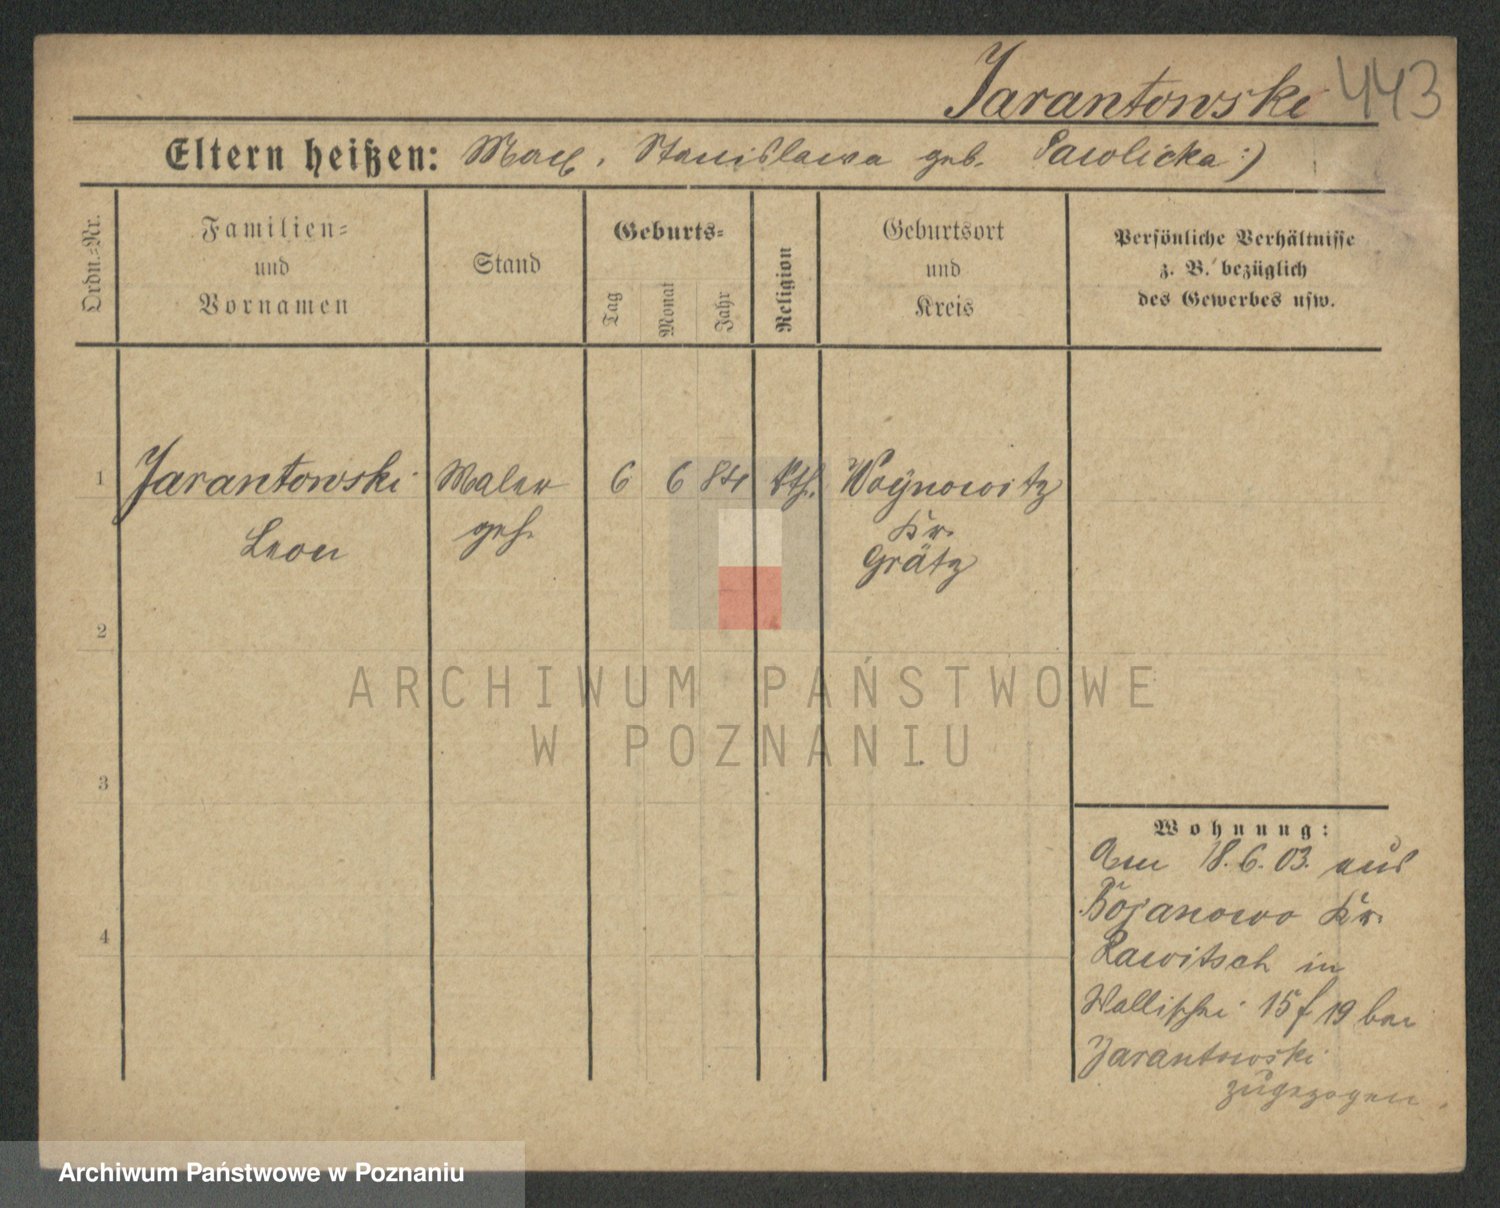 Jarantowski 443
Eltern heißen: Max, Stanislawa geb. Pawlicka :)
Ordn.=Nr.
Familien=
und
Vornamen
Stand
Geburts=
Tag
Monat
Jahr
Religion
Geburtsort
und
Kreis
Persönliche Verhältnisse
z. B. bezüglich
des Gewerbes usw.
1 Jarantowski Maler 6 6 84 kth. Woynowitz
Leon geh. Kr.
Grätz
2
3
4
Wohnung:
Am 18.6.03. aus
Bojanowo Kr.
Rawitsch in
Wallischei 15/19 bei
Jarantowski
zugezogen.
ARCHIWUM PAŃSTWOWE
W POZNANIU
Archiwum Państwowe w Poznaniu